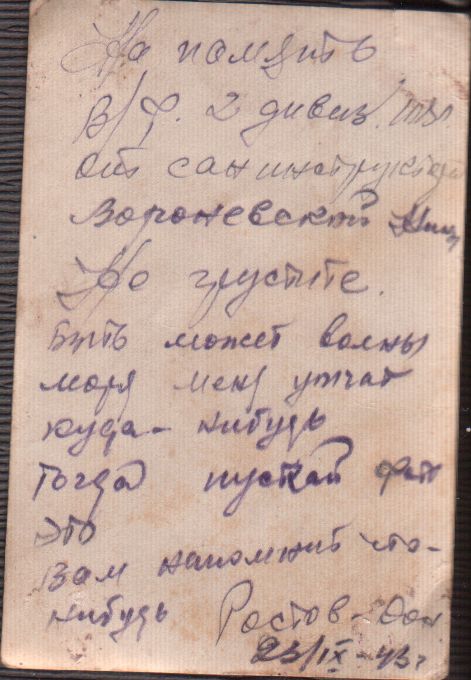 На память
в/ф. 2 дивиз.
от санинструктора
Вороневской
Не грустите.
Быть может волны
моря меня умчат
куда-нибудь
Тогда пускай фото
это
вам напомнит что-
нибудь Ростов-Дон
23/IX-43г